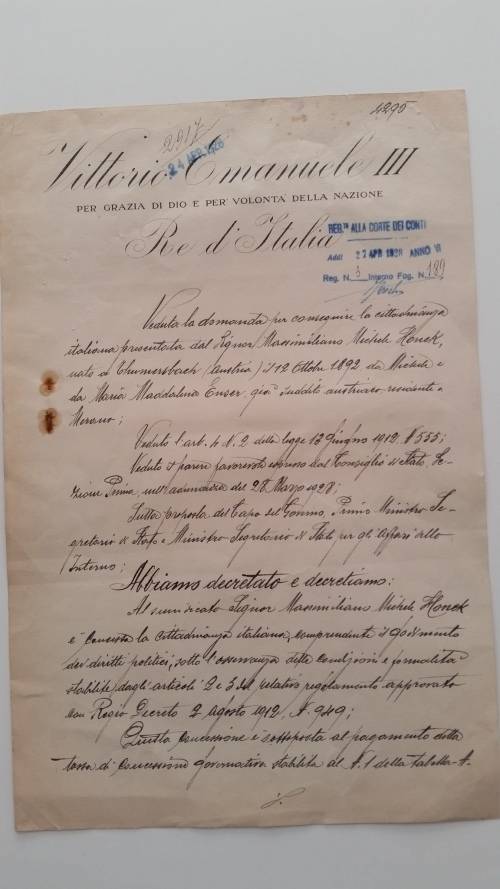 4295
2917
24 APR 1928
Vittorio Emanuele III
PER GRAZIA DI DIO E PER VOLONTÀ DELLA NAZIONE
Re d'Italia
REG.TO ALLA CORTE DEI CONTI
Addì 27 APR 1928 ANNO VI
Reg. N. 3 Interno Fog. N. 189
Veduta la domanda per conseguire la cittadinanza
italiana presentata dal Signor Massimiliano Michele Honeck,
nato a Thumersbach (Austria) il 12 Ottobre 1892 da Michele e
da Maria Maddalena Enser, già suddito austriaco, residente a
Merano;
Veduto l'art. 4 N. 2 della legge 13 Giugno 1912, N 555;
Veduto il parere favorevole espresso dal Consiglio di Stato, Se-
zione Prima, nell'adunanza del 28 Marzo 1928;
Sulla proposta del Capo del Governo, Primo Ministro Se-
gretario di Stato e Ministro Segretario di Stato per gli Affari dello
Interno;
Abbiamo decretato e decretiamo:
Al summenzionato Signor Massimiliano Michele Honeck
è concessa la cittadinanza italiana, comprendente il godimento
dei diritti politici, sotto l'osservanza delle condizioni e formalità
stabilite dagli articoli 2 e 3 del relativo regolamento approvato
con Regio Decreto 2 agosto 1912, N. 949;
Questa concessione è sottoposta al pagamento della
tassa di concessione governativa stabilita al N. 1 della tabella A.